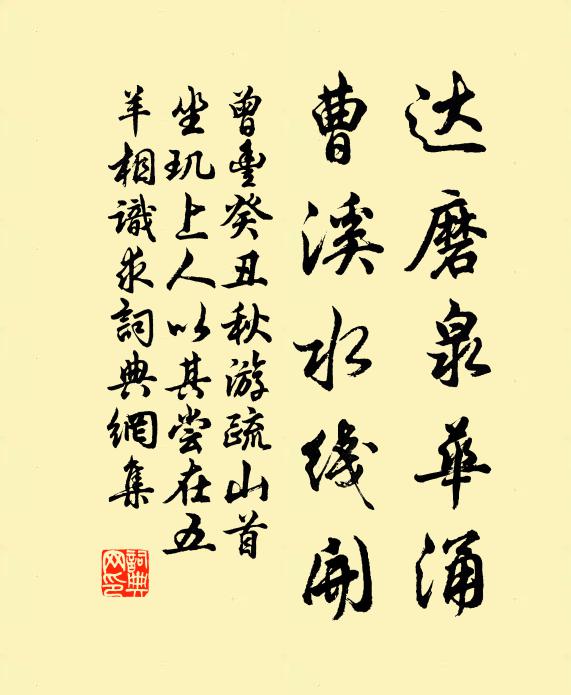 达磨泉华涌
曹溪水线开
曾豊癸丑秋游疏山首
坐玑上人以其尝在五
羊相识求詞典網集
詞典
网印